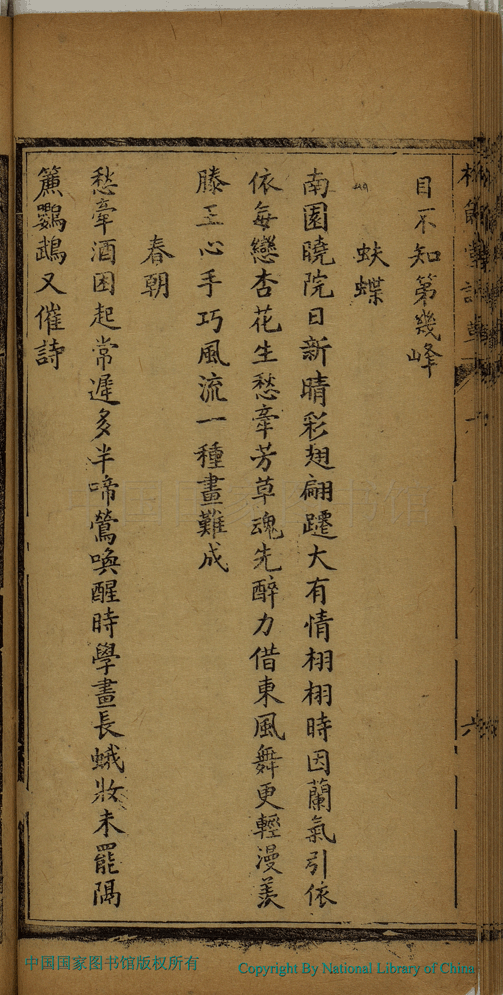 目不知第幾峰
蚨蝶
南園曉院日新晴彩翅翩躚大有情栩栩時因蘭氣引依
依每戀杏花生愁牽芳草魂先醉力借東風舞更輕漫羡
滕王心手巧風流一種畫難成
春朝
愁牽酒困起常遲多半啼鶯喚醒時學畫長蛾妝未罷隔
簾鸚鵡又催詩
中国国家图书馆
中国国家图书馆版权所有
Copyright By National Library of China